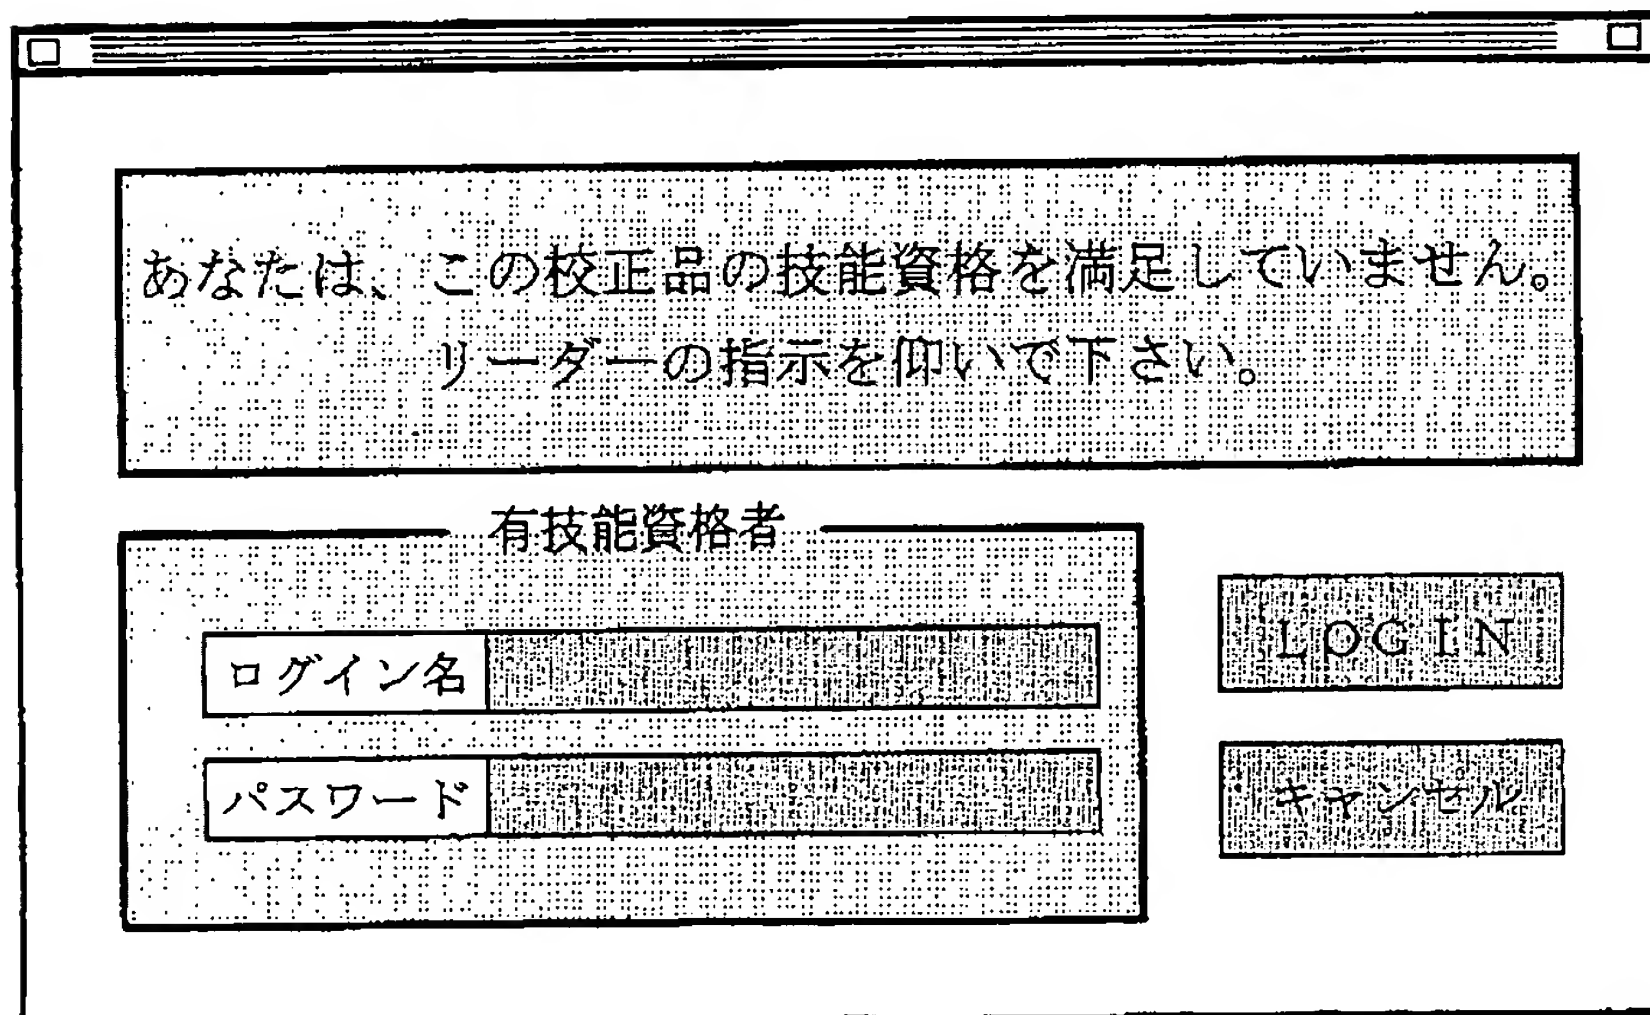 あなたは、この校正品の技能資格を満足していません。
リーダーの指示を仰いで下さい。
有技能資格者
ログイン名
パスワード
LOGIN
キャンセル